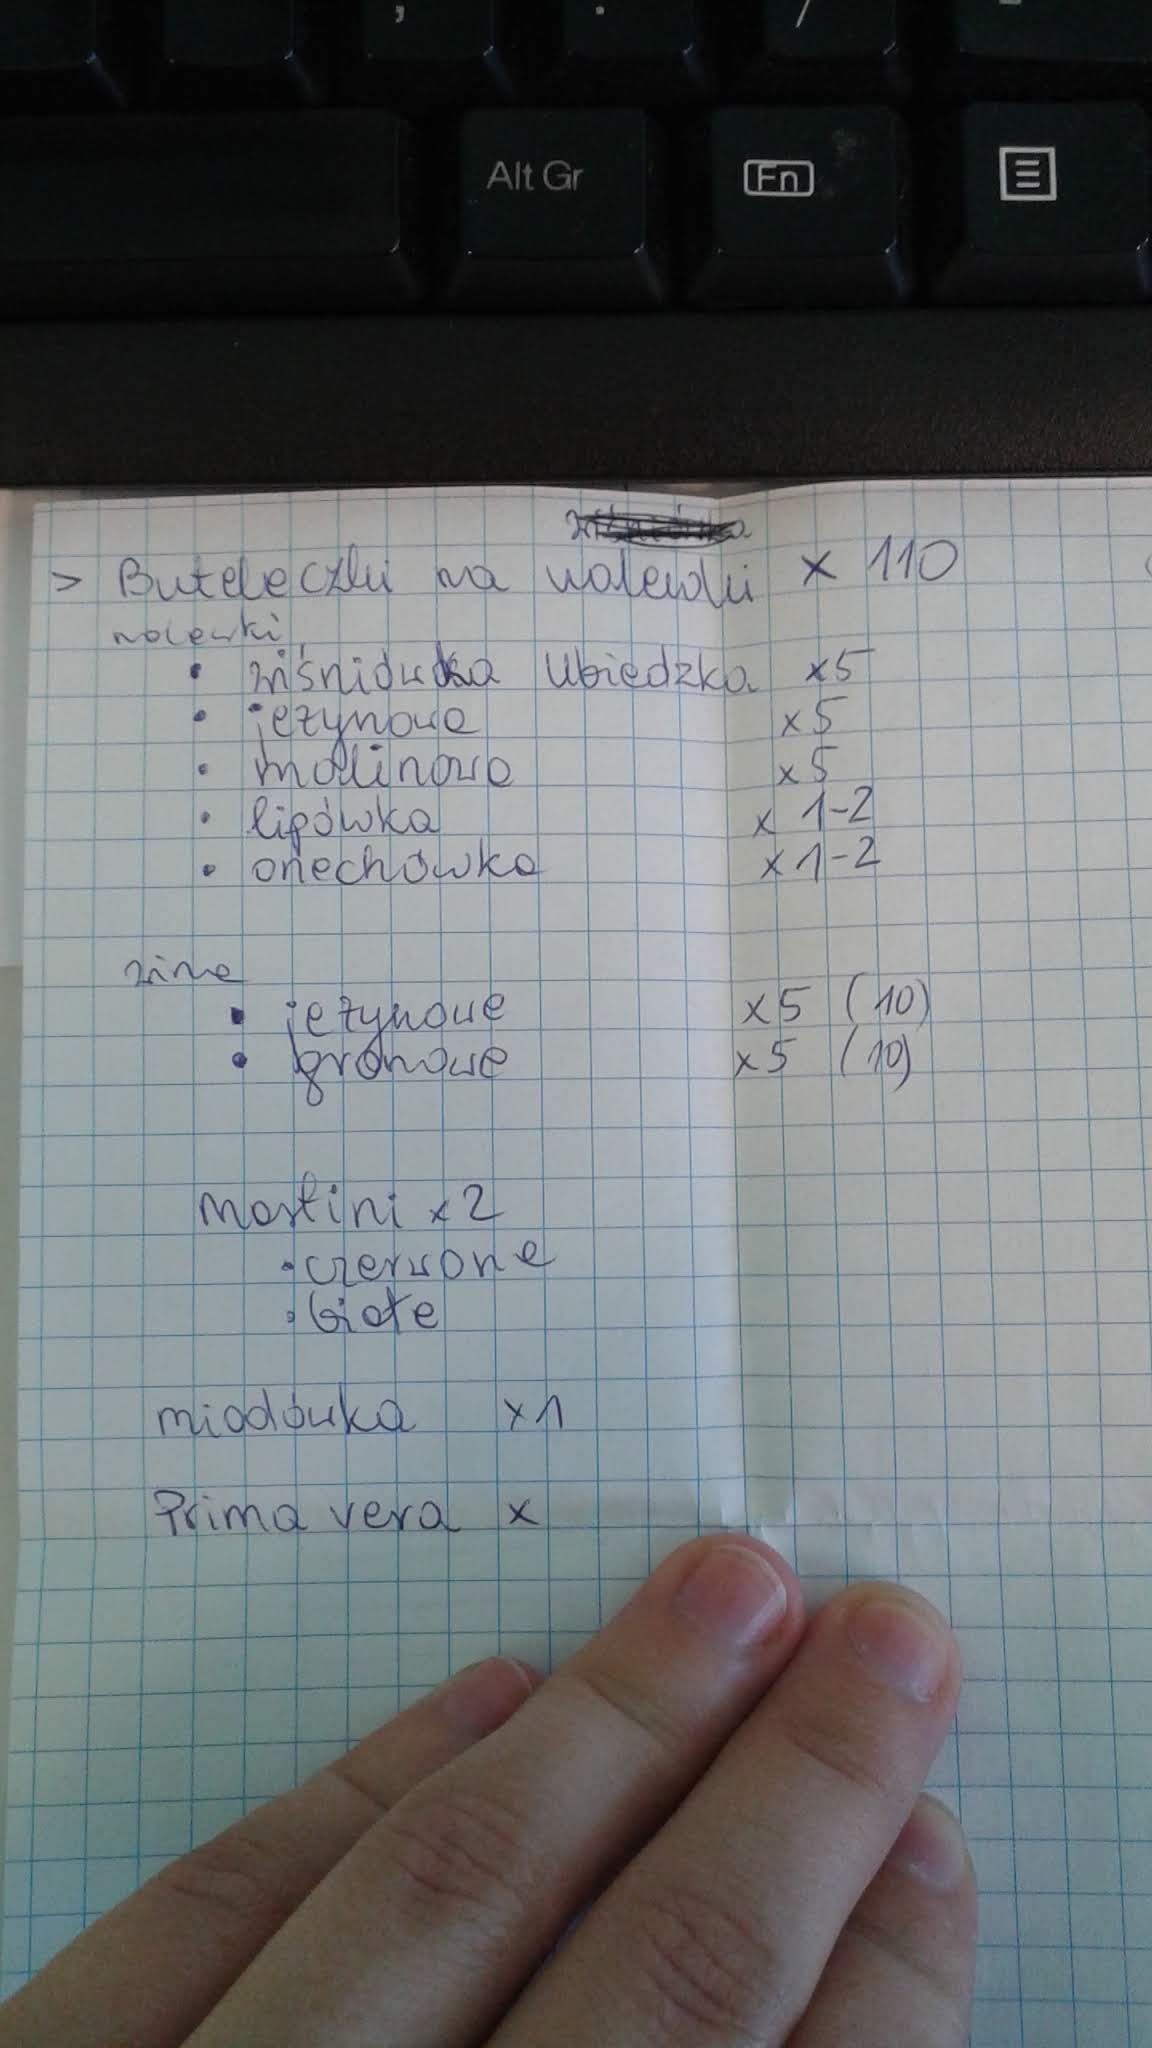 , . / -
Alt Gr Fn
> Buteleczki na nalewki x 110
nalewki
• wiśniówka Ubiedzka x5
• jeżynowa x5
• malinowa x5
• lipówka x 1-2
• orzechówka x 1-2
wina
• jeżynowe x5 (10)
• gronowe x5 (10)
martini x2
• czerwone
• białe
miodówka x1
Prima vera x